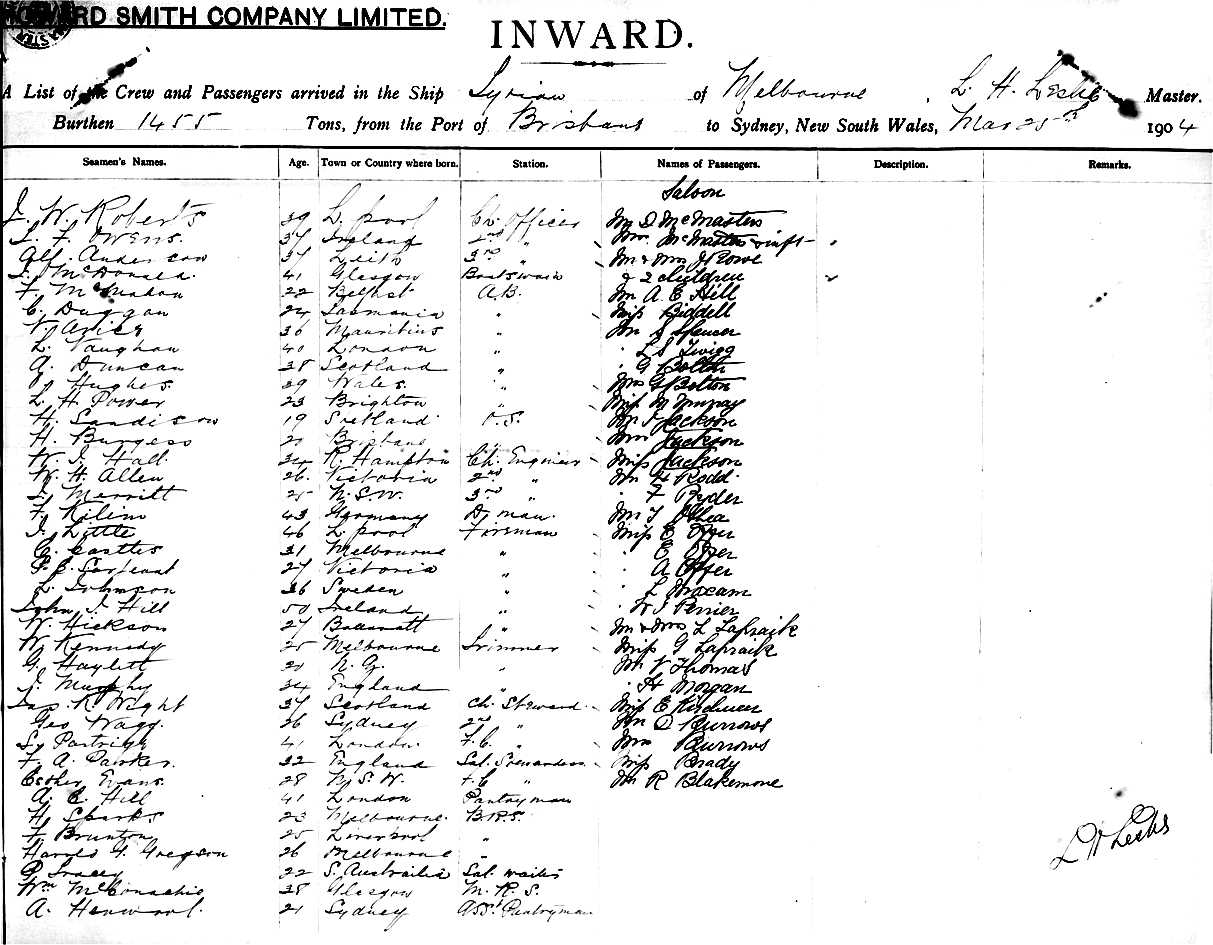 HOWARD SMITH COMPANY LIMITED.
INWARD.
A List of the Crew and Passengers arrived in the Ship Syrian of Melbourne, L. H. Leslie Master.
Burthen 1455 Tons, from the Port of Brisbane to Sydney, New South Wales, Mar 25th 1904
Seamen's Names. Age. Town or Country where born. Station. Names of Passengers. Description. Remarks.
Saloon
J. W. Roberts 39 L. pool Ch. Officer Mr D McMasters
L. F. Owens. 37 Ireland 2nd " Mrs McMaster & inft
Alf. Anderson 37 Leith 3rd " Mr & Mrs J Rowe
McDonald. 41 Glasgow Boatswain & 2 children
F. McMahon 22 Belfast A.B. Mr A. E Hill
C. Duggan 24 Tasmania " Miss Biddell
36 Mauritius " Mr S Spencer
L. Vaughan 40 London " " L S Twigg
A. Duncan 28 Scotland " " G Bolton
Hughes. 29 Wales. " Mrs G Bolton
L. H. Power 23 Brighton " Miss M Murray
H. Sandison 19 O.S. Mr J Jackson
H. Burgess 21 Brisbane " Mrs Jackson
W. J. Hall 34 R. Hampton Ch. Engineer Miss Jackson
W. H. Allen 26 Victoria 2nd " Mr H Rodd
J. Merritt 25 N.S.W. 3rd " " F Ryder
F. Kilim 43 Germany D. man. Mr J OShea
J. Little 46 L. pool Fireman Miss E Offer
C. Castles 31 Melbourne " " E Offer
P. C. Sargeant 27 Victoria " " A Offer
L. Johnson 36 Sweden " " L
John J. Hill 50 Ireland " " W J Perrier
W. Hickson 27 Ballaratt " Mr & Mrs L Lapraik
W. Kennedy 25 Melbourne Trimmer Miss G Lapraik
G. Haylett 21 N. Z. " Mr V Thomas
J. Murphy 34 England " " H Morgan
Jas R. Wright 37 Scotland Ch. Steward Miss E
Geo Wagg. 26 Sydney 2nd " Mr D Burrows
Sy Partridge 41 London. F.C. " Mrs Burrows
F. A. Parker. 32 England Sal. Stewardess Miss Brady
Esther Evans. 28 N.S.W. F.C " Mr R Blakemore
A. E. Hill 41 London Pantryman
H. Sparks 23 Melbourne. B.R.S.
F. Brunton 25 Liverpool "
Harold G. Gregson 26 Melbourne "
P. Tracey 22 S. Australia Sal. waiter
Wm McConachie 28 Glasgow M. R. S.
A. Henwood. 21 Sydney Asst Pantryman
L H Leslie